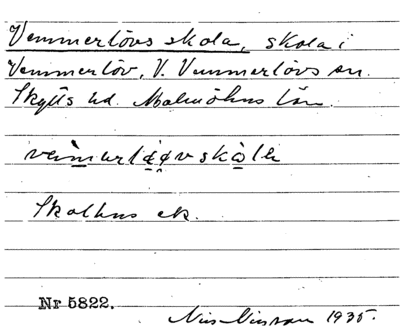 Vemmerlövs skola, skola i
Vemmerlöv, V. Vemmerlövs sn.
Skytts hd. Malmöhus län.
Skolhus ek.
Nr 5822.
Nils Nilsson 1935.